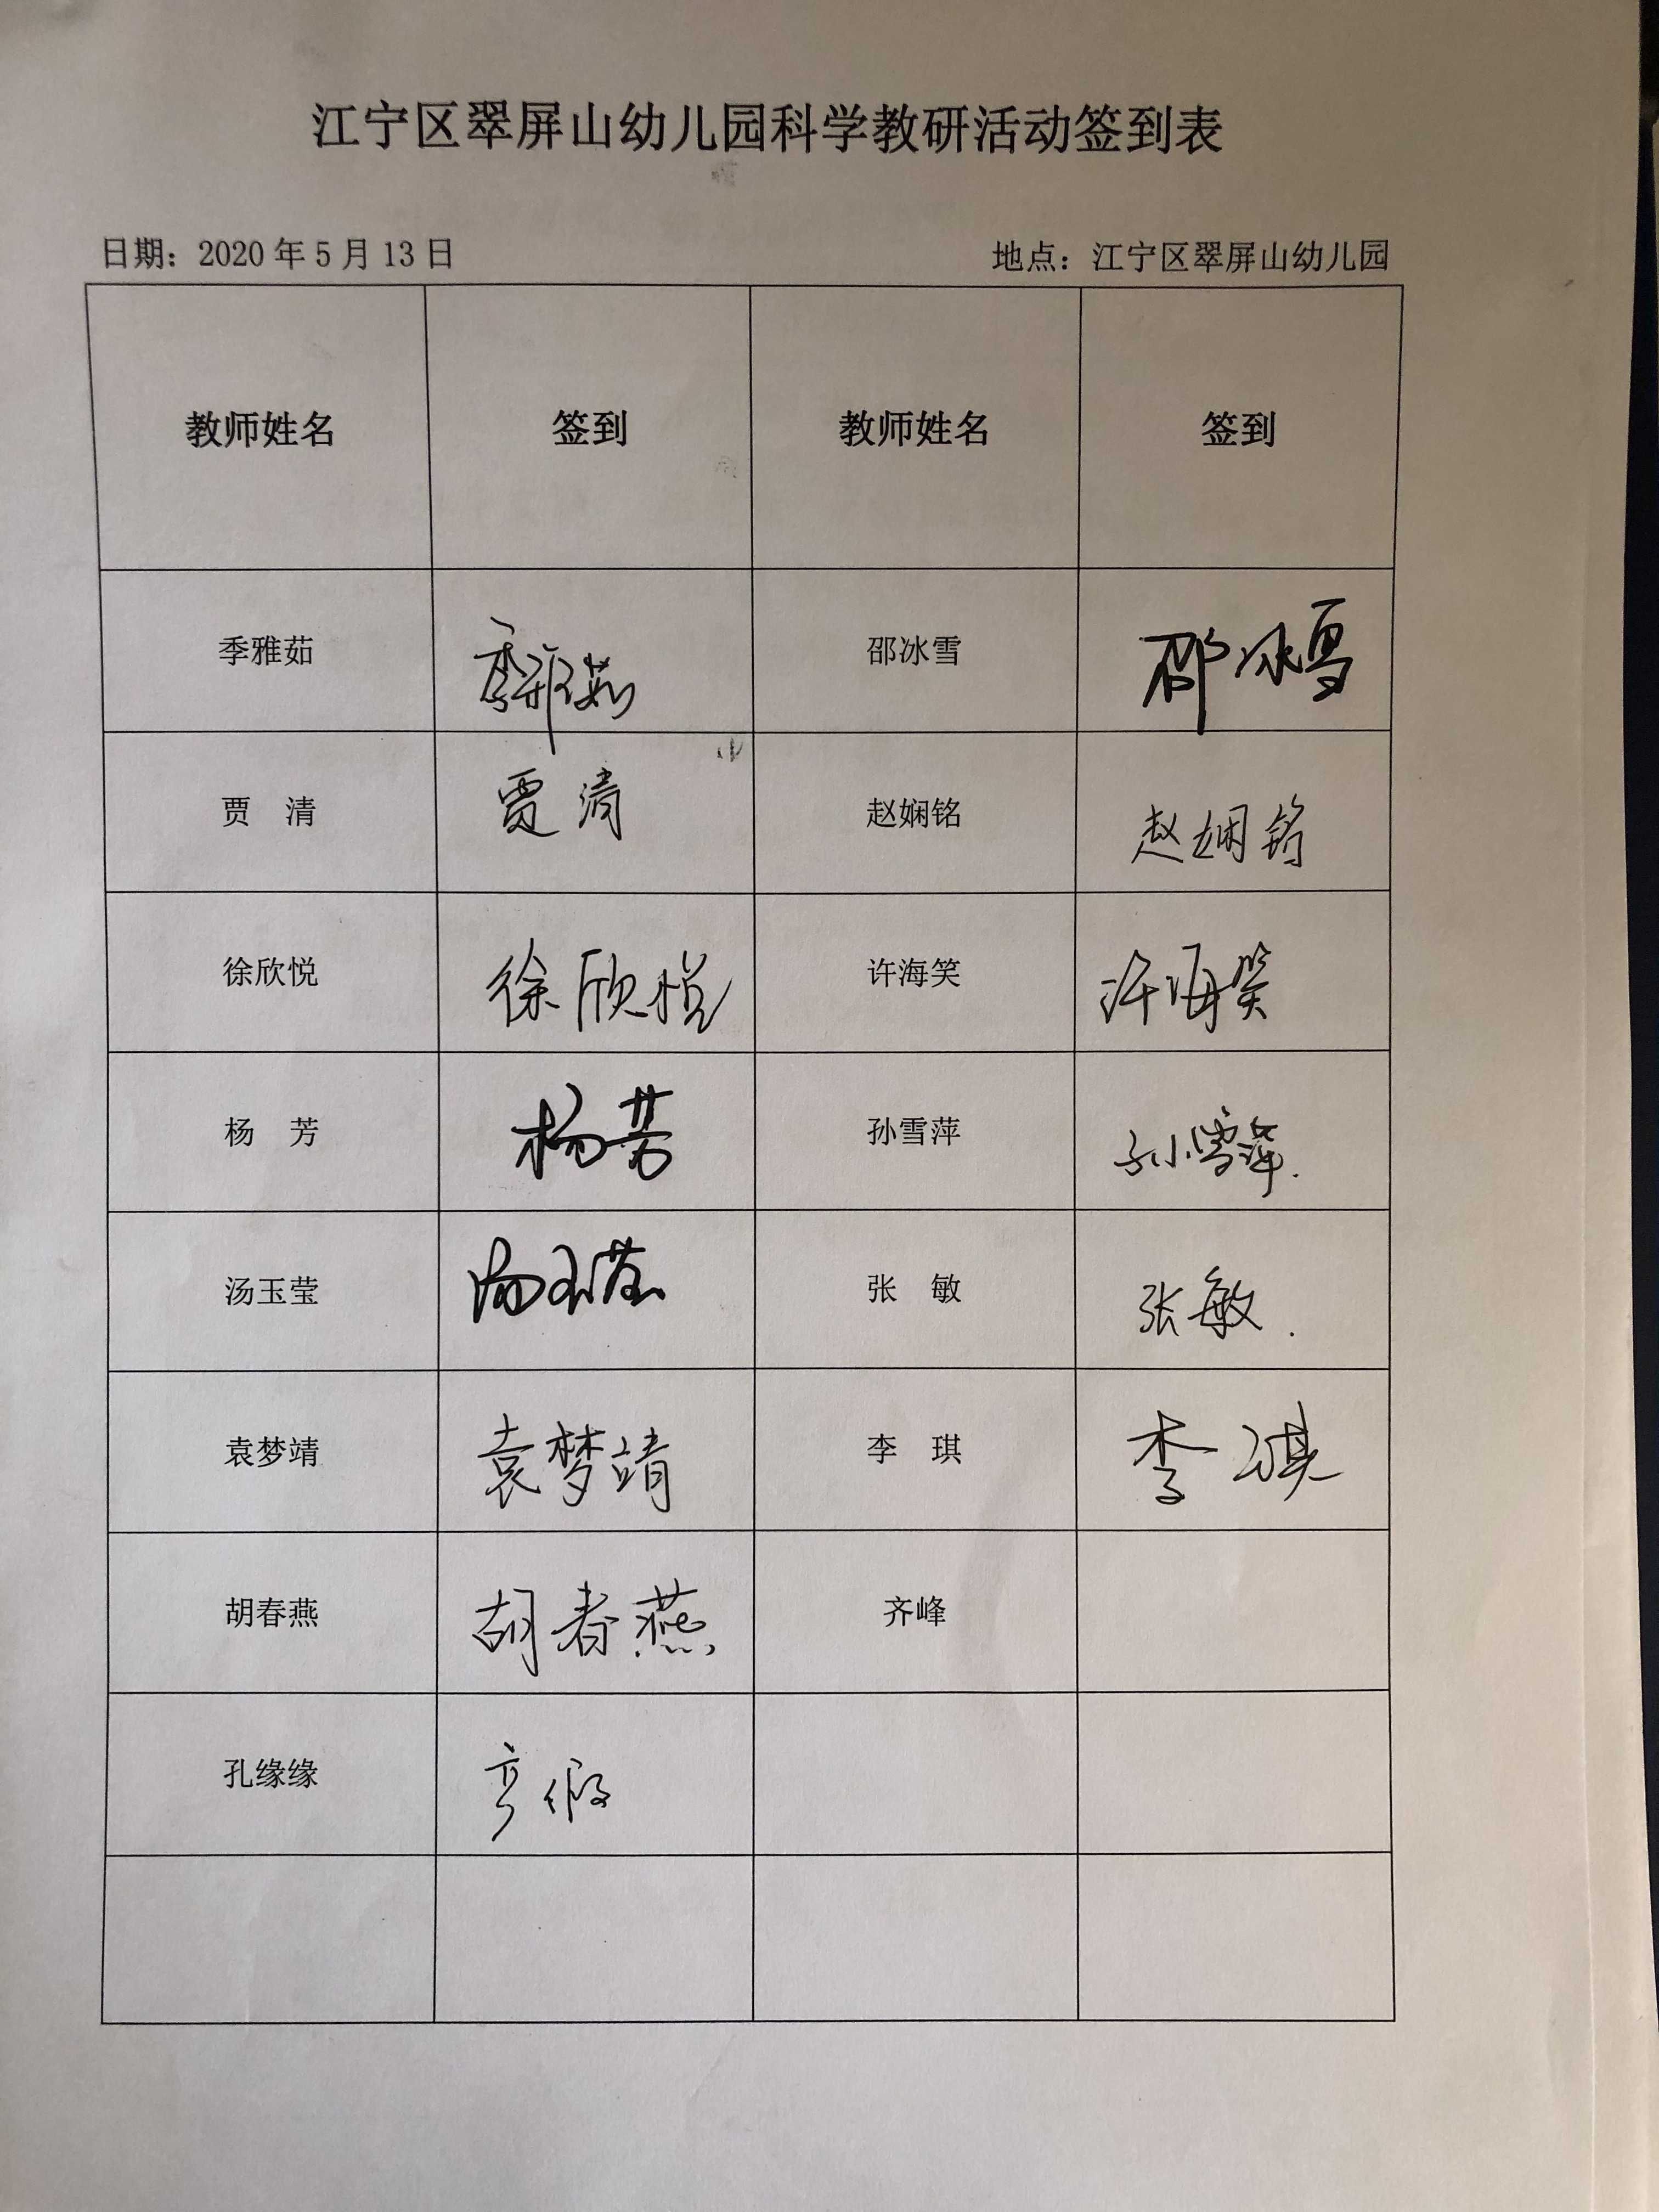 江宁区翠屏山幼儿园科学教研活动签到表
日期：2020年5月13日 地点：江宁区翠屏山幼儿园
教师姓名 签到 教师姓名 签到
季雅茹 季雅茹 邵冰雪 邵冰雪
贾 清 贾清 赵娴铭 赵娴铭
徐欣悦 徐欣悦 许海笑 许海笑
杨 芳 杨芳 孙雪萍 孙雪萍.
汤玉莹 汤玉莹 张 敏 张敏.
袁梦靖 袁梦靖 李 琪 李琪
胡春燕 胡春燕 齐峰
孔缘缘 产假